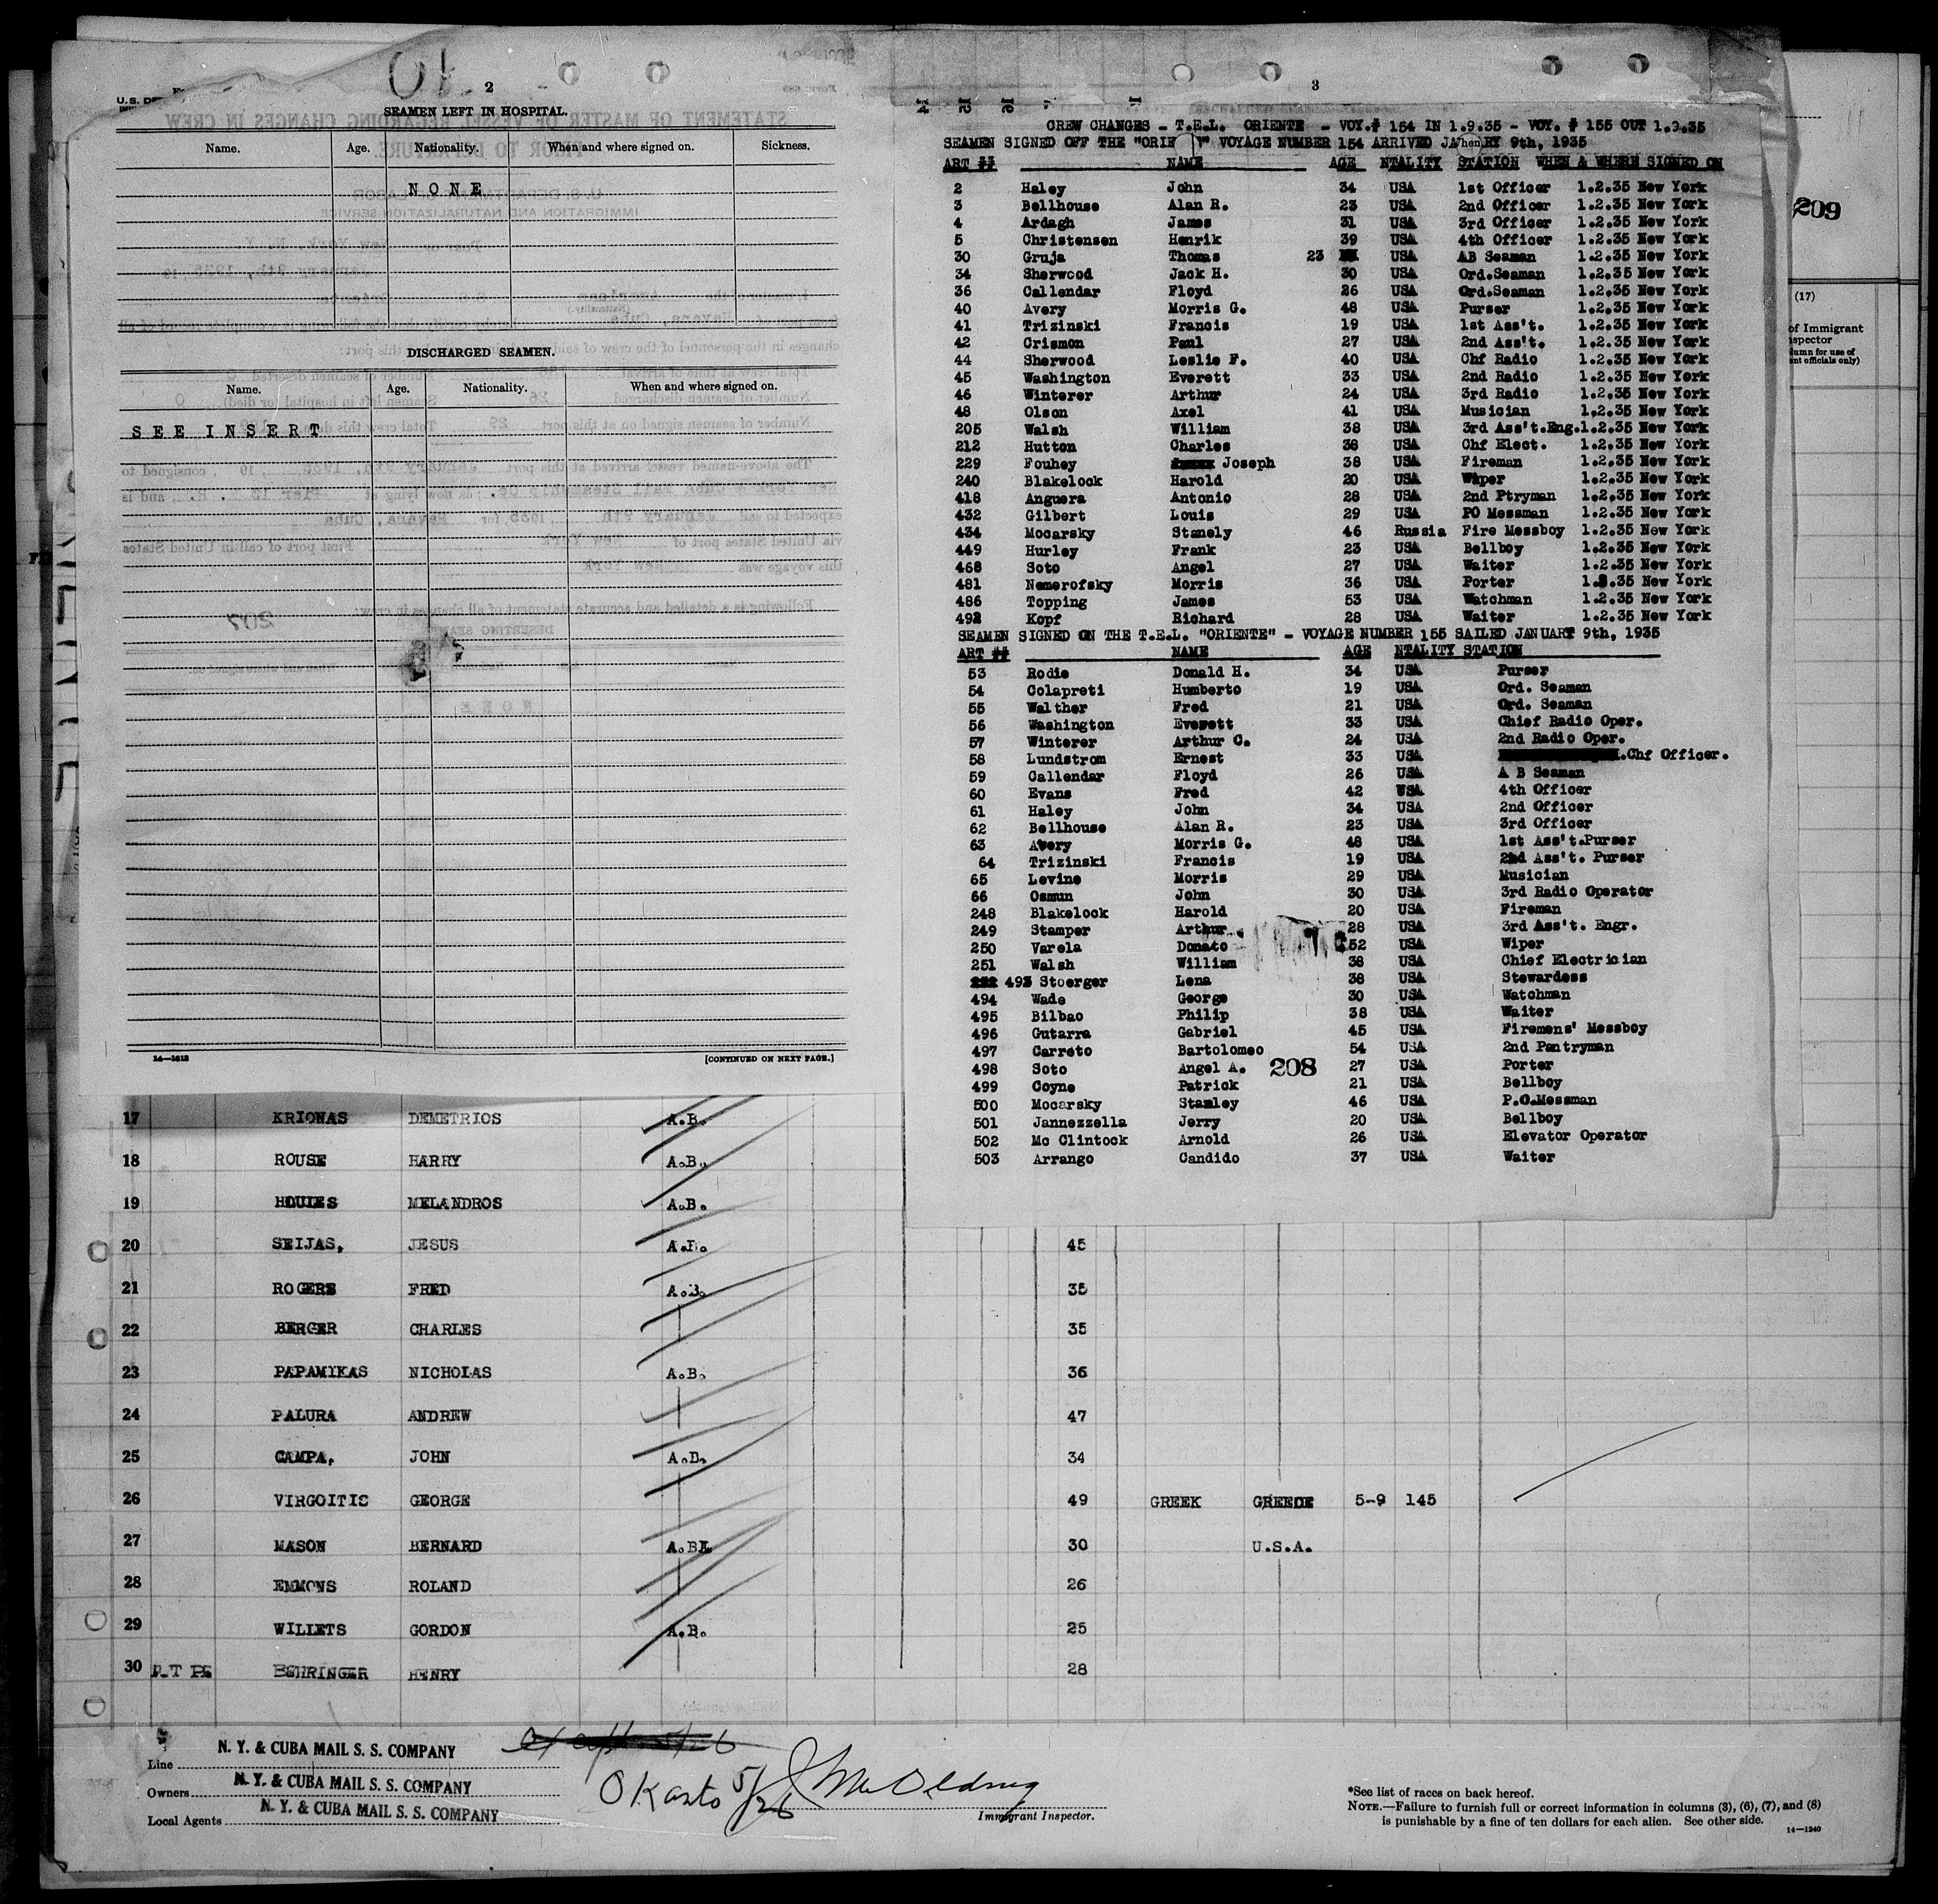 2
SEAMEN LEFT IN HOSPITAL.
Name. Age. Nationality. When and where signed on. Sickness.
NONE
DISCHARGED SEAMEN.
Name. Age. Nationality. When and where signed on.
SEE INSERT
14—1613 [CONTINUED ON NEXT PAGE.]
3
CREW CHANGES - T.E.L. ORIENTE - VOY.# 154 IN 1.9.35 - VOY. # 155 OUT 1.9.35
SEAMEN SIGNED OFF THE "ORIE VOYAGE NUMBER 154 ARRIVED JA RY 9th, 1935
ART ## NAME AGE NTALITY STATION WHEN & WHERE SIGNED ON
2 Haley John 34 USA 1st Officer 1.2.35 New York
3 Bellhouse Alan R. 23 USA 2nd Officer 1.2.35 New York
4 Ardagh James 31 USA 3rd Officer 1.2.35 New York
5 Christensen Henrik 39 USA 4th Officer 1.2.35 New York
30 Gruja Thomas 23 USA AB Seaman 1.2.35 New York
34 Sherwood Jack H. 30 USA Ord.Seaman 1.2.35 New York
36 Callendar Floyd 26 USA Ord.Seaman 1.2.35 New York
40 Avery Morris G. 48 USA Purser 1.2.35 New York
41 Trizinski Francis 19 USA 1st Ass't. 1.2.35 New York
42 Crismon Paul 27 USA 2nd Ass't. 1.2.35 New York
44 Sherwood Leslie F. 40 USA Chf Radio 1.2.35 New York
45 Washington Everett 33 USA 2nd Radio 1.2.35 New York
46 Winterer Arthur 24 USA 3rd Radio 1.2.35 New York
48 Olson Axel 41 USA Musician 1.2.35 New York
205 Walsh William 38 USA 3rd Ass't.Eng.1.2.35 New York
212 Hutton Charles 38 USA Chf Elect. 1.2.35 New York
229 Fouhey Joseph 38 USA Fireman 1.2.35 New York
240 Blakelock Harold 20 USA Wiper 1.2.35 New York
418 Anguera Antonio 28 USA 2nd Ptryman 1.2.35 New York
432 Gilbert Louis 29 USA PO Messman 1.2.35 New York
434 Mocarsky Stanely 46 Russia Fire Messboy 1.2.35 New York
449 Hurley Frank 23 USA Bellboy 1.2.35 New York
468 Soto Angel 27 USA Waiter 1.2.35 New York
481 Nemerofsky Morris 36 USA Porter 1.2.35 New York
486 Topping James 53 USA Watchman 1.2.35 New York
492 Kopf Richard 28 USA Waiter 1.2.35 New York
SEAMEN SIGNED ON THE T.E.L. "ORIENTE" - VOYAGE NUMBER 155 SAILED JANUARY 9th, 1935
ART ## NAME AGE NTALITY STATION
53 Rodie Donald H. 34 USA Purser
54 Colapreti Humberto 19 USA Ord. Seaman
55 Walther Fred 21 USA Ord. Seaman
56 Washington Everett 33 USA Chief Radio Oper.
57 Winterer Arthur C. 24 USA 2nd Radio Oper.
58 Lundstrom Ernest 33 USA .Chf Officer.
59 Callendar Floyd 26 USA A B Seaman
60 Evans Fred 42 USA 4th Officer
61 Haley John 34 USA 2nd Officer
62 Bellhouse Alan R. 23 USA 3rd Officer
63 Avery Morris G. 48 USA 1st Ass't.Purser
64 Trizinski Francis 19 USA 2nd Ass't. Purser
65 Levine Morris 29 USA Musician
66 Osmun John 30 USA 3rd Radio Operator
248 Blakelock Harold 20 USA Fireman
249 Stamper Arthur 28 USA 3rd Ass't. Engr.
250 Varela Donato 52 USA Wiper
251 Walsh William 38 USA Chief Electrician
493 Stoerger Lena 38 USA Stewardess
494 Wade George 30 USA Watchman
495 Bilbao Philip 38 USA Waiter
496 Gutarra Gabriel 45 USA Firemens' Messboy
497 Carreto Bartolomeo 54 USA 2nd Pantryman
498 Soto Angel A. 27 USA Porter
208
499 Coyne Patrick 21 USA Bellboy
500 Mocarsky Stanley 46 USA P.O.Messman
501 Jannezzella Jerry 20 USA Bellboy
502 Mc Clintock Arnold 26 USA Elevator Operator
503 Arrango Candido 37 USA Waiter
209
(17)
of Immigrant
17 KRIONAS DEMETRIOS A.B.
18 ROUSE HARRY A.B.
19 HOULES MELANDROS A.B.
20 SEIJAS, JESUS A.B. 45
21 ROGERS FRED A.B. 35
22 BERGER CHARLES 35
23 PAPAMIKAS NICHOLAS A.B. 36
24 PALURA ANDREW 47
25 CAMPA, JOHN A.B. 34
26 VIRGOITIS GEORGE 49 GREEK GREECE 5-9 145
27 MASON BERNARD A.B. 30 U.S.A.
28 EMMONS ROLAND 26
29 WILLETS GORDON A.B. 25
30 BEHRINGER HENRY 28
Line N. Y. & CUBA MAIL S. S. COMPANY
Owners N. Y. & CUBA MAIL S. S. COMPANY
Local Agents N. Y. & CUBA MAIL S. S. COMPANY
OK as to 5/26
Immigrant Inspector.
*See list of races on back hereof.
NOTE.—Failure to furnish full or correct information in columns (3), (6), (7), and (8)
is punishable by a fine of ten dollars for each alien. See other side.
14—1240